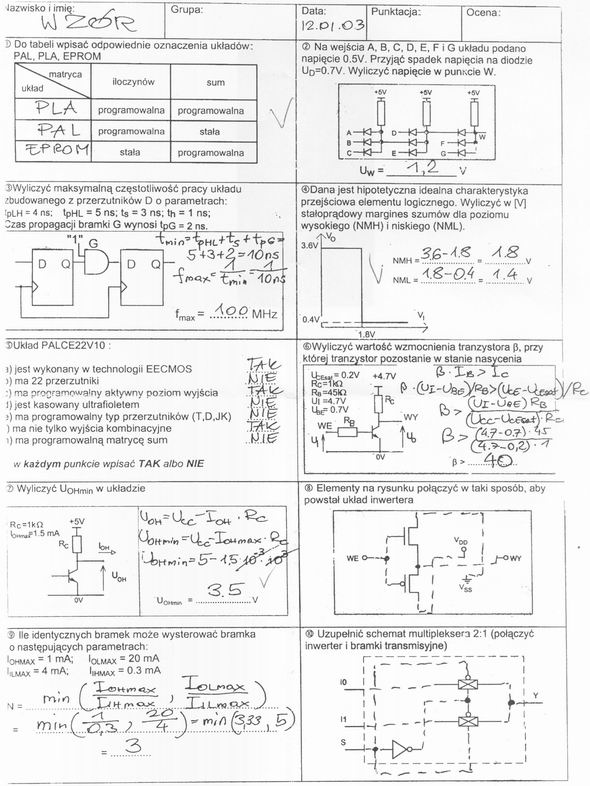 Nazwisko i imię:
WZÓR
Grupa:
Data:
12.01.03
Punktacja:
Ocena:
① Do tabeli wpisać odpowiednie oznaczenia układów:
PAL, PLA, EPROM
matryca
układ
iloczynów
suma
PLA programowalna programowalna
PAL programowalna stała
EPROM stała programowalna
② Na wejścia A, B, C, D, E, F i G układu podano
napięcie 0.5V. Przyjąć spadek napięcia na diodzie
UD=0.7V. Wyliczyć napięcie w punkcie W.
+5V +5V +5V
A D W
B F
C E G
UW = 1,2 V
③Wyliczyć maksymalną częstotliwość pracy układu
zbudowanego z przerzutników D o parametrach:
tpLH = 4 ns; tpHL = 5 ns; ts = 3 ns; th = 1 ns;
Czas propagacji bramki G wynosi tpG = 2 ns.
"1" G
D Q D Q
tmin = tpHL + ts + tpG =
5+3+2=10ns
fmax = 1/tmin = 1/10ns
fmax = 100 MHz
④Dana jest hipotetyczna idealna charakterystyka
przejściowa elementu logicznego. Wyliczyć w [V]
stałoprądowy margines szumów dla poziomu
wysokiego (NMH) i niskiego (NML).
VO
3.6V
0.4V
1.8V
VI
NMH = 3.6-1.8 = 1.8 V
NML = 1.8-0.4 = 1.4 V
⑤Układ PALCE22V10 :
) jest wykonany w technologii EECMOS TAK
) ma 22 przerzutniki NIE
) ma programowalny aktywny poziom wyjścia TAK
) jest kasowany ultrafioletem NIE
) ma programowalny typ przerzutników (T,D,JK) NIE
) ma nie tylko wyjścia kombinacyjne TAK
) ma programowalną matrycę sum NIE
w każdym punkcie wpisać TAK albo NIE
⑥Wyliczyć wartość wzmocnienia tranzystora β, przy
której tranzystor pozostanie w stanie nasycenia
UCEsat = 0.2V
RC=1kΩ
RB=45kΩ
UI =4.7V
UBE= 0.7V
+4.7V
RC
RB
WE
WY
0V
β · IB > IC
β · (UI-UBE)/RB > (UCC-UCEsat)/RC
β > (UI-UBE) RB
(UCC-UCEsat) · RC
β > (4.7-0.7) · 45
(4.7-0.2) · 1
β > 40
⑦ Wyliczyć UOHmin w układzie
RC=1kΩ
IOHmax=1.5 mA
+5V
RC
IOH
UOH
0V
UOH = UCC - IOH · RC
UOHmin = UCC - IOHmax · RC
UOHmin = 5 - 1,5 · 10⁻³ · 10³
UOHmin = 3.5 V
⑧ Elementy na rysunku połączyć w taki sposób, aby
powstał układ inwertera
WE
VDD
WY
VSS
⑨ Ile identycznych bramek może wysterować bramka
o następujących parametrach:
IOHMAX = 1 mA; IOLMAX = 20 mA
IILMAX = 4 mA; IIHMAX = 0.3 mA
N = min (IOHmax/IIHmax , IOLmax/IILmax)
= min (1/0,3 , 20/4) = min (3.33 , 5)
= 3
⑩ Uzupełnić schemat multipleksera 2:1 (połączyć
inwerter i bramki transmisyjne)
I0
I1
S
Y